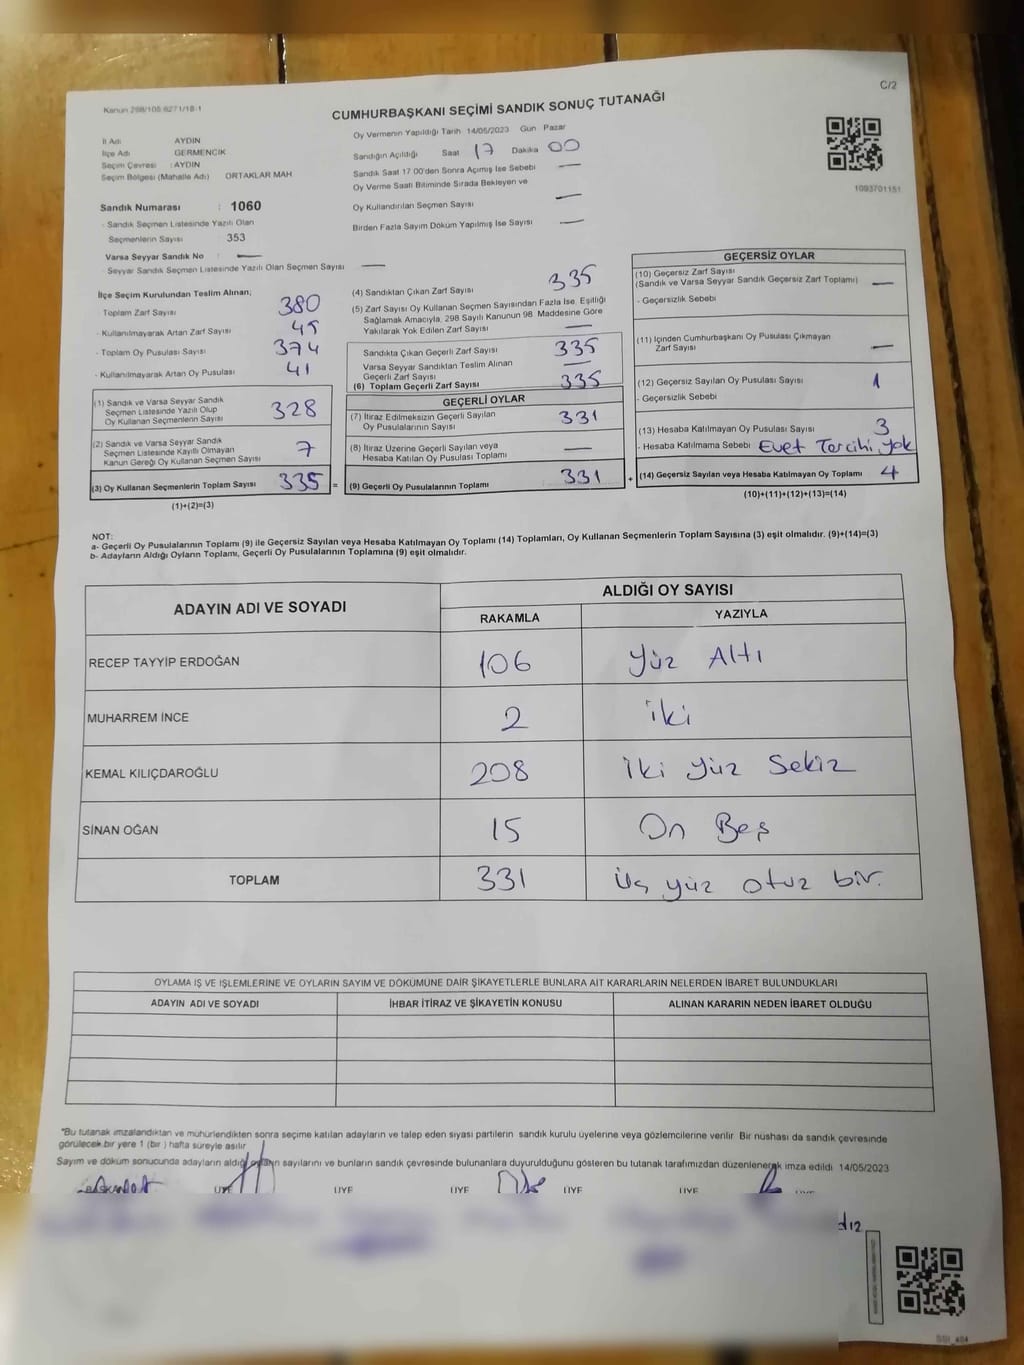 Kanun 298/105 6271/18-1
C/2
CUMHURBAŞKANI SEÇİMİ SANDIK SONUÇ TUTANAĞI
İl Adı AYDIN
İlçe Adı GERMENCİK
Seçim Çevresi : AYDIN
Seçim Bölgesi (Mahalle Adı) ORTAKLAR MAH
Sandık Numarası : 1060
- Sandık Seçmen Listesinde Yazılı Olan
Seçmenlerin Sayısı : 353
Varsa Seyyar Sandık No : —
- Seyyar Sandık Seçmen Listesinde Yazılı Olan Seçmen Sayısı —
Oy Vermenin Yapıldığı Tarih 14/05/2023 Gün Pazar
Sandığın Açıldığı Saat 17 Dakika 00
Sandık Saat 17 00'den Sonra Açımış İse Sebebi —
Oy Verme Saati Bitiminde Sırada Bekleyen ve
Oy Kullandırılan Seçmen Sayısı —
Birden Fazla Sayım Döküm Yapılmış İse Sayısı —
1093701151
İlçe Seçim Kurulundan Teslim Alınan;
Toplam Zarf Sayısı 380
- Kullanılmayarak Artan Zarf Sayısı 45
- Toplam Oy Pusulası Sayısı 374
- Kullanılmayarak Artan Oy Pusulası 41
(1) Sandık ve Varsa Seyyar Sandık
Seçmen Listesinde Yazılı Olup
Oy Kullanan Seçmenlerin Sayısı 328
(2) Sandık ve Varsa Seyyar Sandık
Seçmen Listesinde Kayıtlı Olmayan
Kanun Gereği Oy Kullanan Seçmen Sayısı 7
(3) Oy Kullanan Seçmenlerin Toplam Sayısı 335
(1)+(2)=(3)
(4) Sandıktan Çıkan Zarf Sayısı 335
(5) Zarf Sayısı Oy Kullanan Seçmen Sayısından Fazla İse, Eşitliği
Sağlamak Amacıyla, 298 Sayılı Kanunun 98. Maddesine Göre
Yakılarak Yok Edilen Zarf Sayısı —
Sandıkta Çıkan Geçerli Zarf Sayısı 335
Varsa Seyyar Sandıktan Teslim Alınan
Geçerli Zarf Sayısı —
(6) Toplam Geçerli Zarf Sayısı 335
GEÇERLİ OYLAR
(7) İtiraz Edilmeksizin Geçerli Sayılan
Oy Pusulasının Sayısı 331
(8) İtiraz Üzerine Geçerli Sayılan veya
Hesaba Katılan Oy Pusulası Toplamı —
= (9) Geçerli Oy Pusulalarının Toplamı 331
GEÇERSİZ OYLAR
(10) Geçersiz Zarf Sayısı
(Sandık ve Varsa Seyyar Sandık Geçersiz Zarf Toplamı) —
- Geçersizlik Sebebi
(11) İçinden Cumhurbaşkanı Oy Pusulası Çıkmayan
Zarf Sayısı —
(12) Geçersiz Sayılan Oy Pusulası Sayısı 1
- Geçersizlik Sebebi
(13) Hesaba Katılmayan Oy Pusulası Sayısı 3
- Hesaba Katılmama Sebebi Evet Tercihi yok
+ (14) Geçersiz Sayılan veya Hesaba Katılmayan Oy Toplamı 4
(10)+(11)+(12)+(13)=(14)
NOT:
a- Geçerli Oy Pusulalarının Toplamı (9) ile Geçersiz Sayılan veya Hesaba Katılmayan Oy Toplamı (14) Toplamları, Oy Kullanan Seçmenlerin Toplam Sayısına (3) eşit olmalıdır. (9)+(14)=(3)
b- Adayların Aldığı Oyların Toplamı, Geçerli Oy Pusulalarının Toplamına (9) eşit olmalıdır.
ADAYIN ADI VE SOYADI ALDIĞI OY SAYISI
RAKAMLA YAZIYLA
RECEP TAYYİP ERDOĞAN 106 Yüz Altı
MUHARREM İNCE 2 iki
KEMAL KILIÇDAROĞLU 208 İki yüz Sekiz
SİNAN OĞAN 15 On Beş
TOPLAM 331 Üç yüz otuz bir.
OYLAMA İŞ VE İŞLEMLERİNE VE OYLARIN SAYIM VE DÖKÜMÜNE DAİR ŞİKAYETLERLE BUNLARA AİT KARARLARIN NELERDEN İBARET BULUNDUKLARI
ADAYIN ADI VE SOYADI İHBAR İTİRAZ VE ŞİKAYETİN KONUSU ALINAN KARARIN NEDEN İBARET OLDUĞU
"Bu tutanak imzalandıktan ve mühürlendikten sonra seçime katılan adayların ve talep eden siyasi partilerin sandık kurulu üyelerine veya gözlemcilerine verilir. Bir nüshası da sandık çevresinde
görülecek bir yere 1 (bir ) hafta süreyle asılır
Sayım ve döküm sonucunda adayların aldığı oyların sayılarını ve bunların sandık çevresinde bulunanlara duyurulduğunu gösteren bu tutanak tarafımızdan düzenlenerek imza edildi 14/05/2023
BAŞKAN ÜYE ÜYE ÜYE ÜYE ÜYE